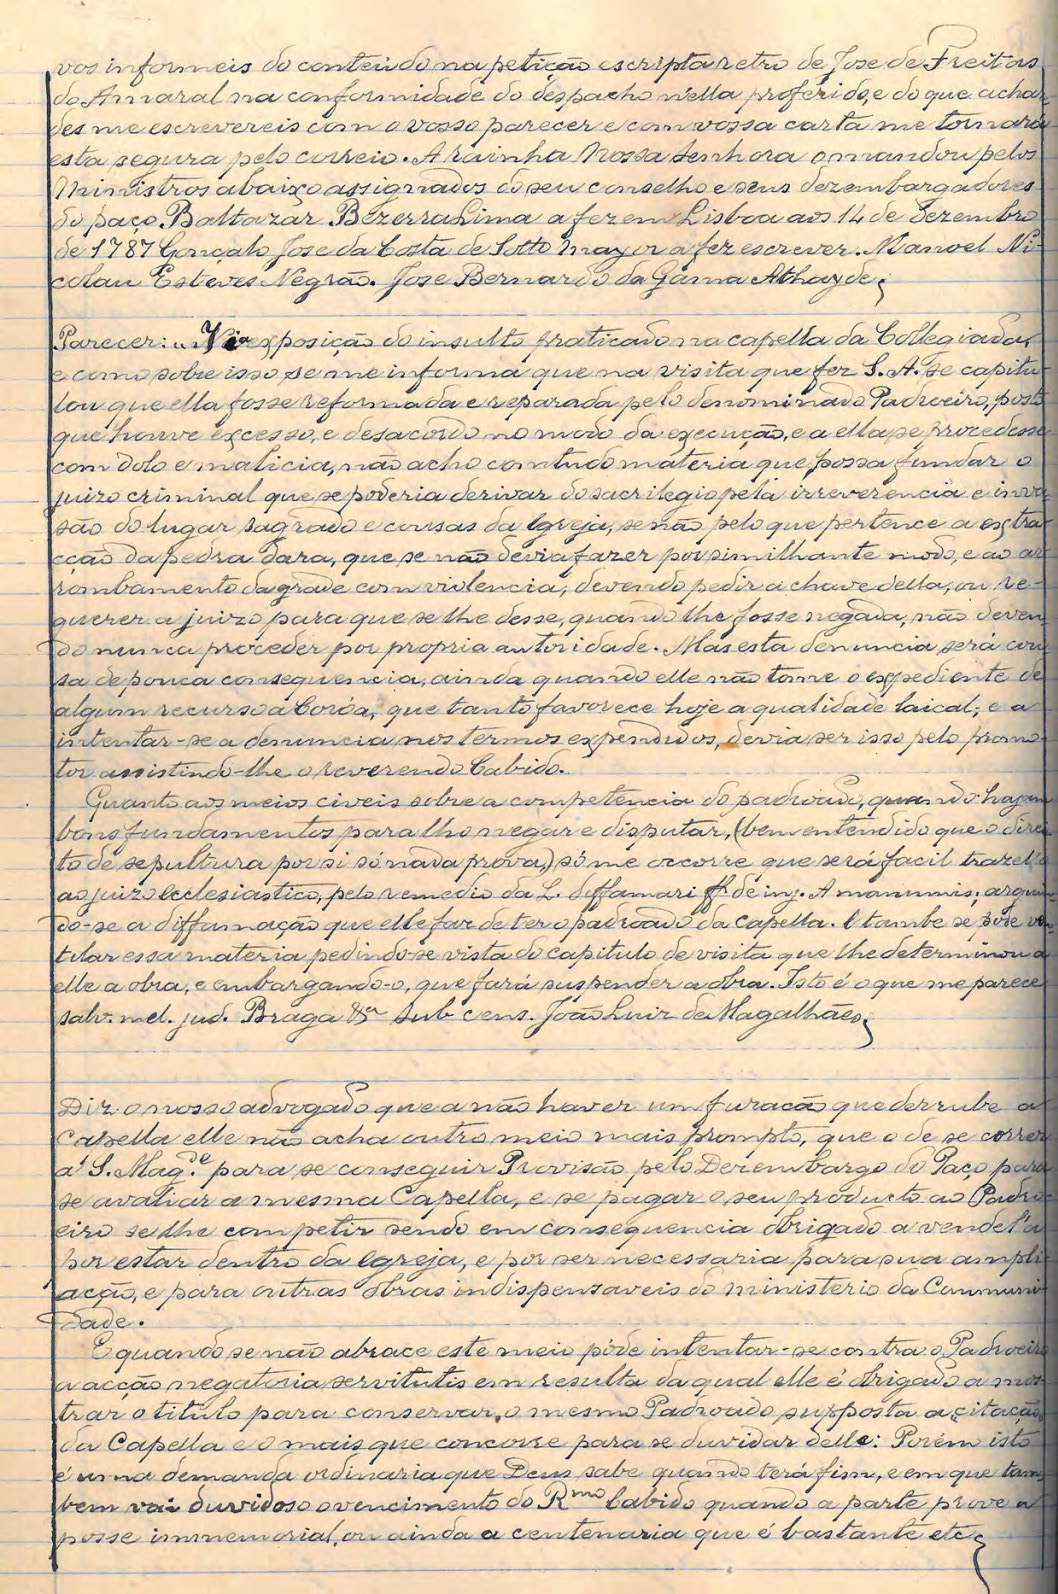 vos informeis do conteúdo na petição escripta retro de Jose de Freitas
do Amaral na conformidade do despacho n'ella proferido, e do que achar-
des me escrevereis com o vosso parecer e com vossa carta me tornará
esta segura pelo correio. A rainha Nossa Senhora o mandou pelos
Ministros abaixo assignados do seu conselho e seus dezembargadores
do paço, Baltazar Bezerra Lima a fez em Lisboa aos 14 de Dezembro
de 1787 Gonçalo Jose da Costa de Sotto Mayor a fez escrever. Manoel Ni-
colau Esteves Negrão. Jose Bernardo da Gama Athayde;
Parecer: "Vi a exposição do insulto praticado na capella da Collegiada,
e como sobre isso se me informa que na visita que fez S. A. se capitu-
lou que ella fosse reformada e reparada pelo denominado Padroeiro, posto
que houve excesso, e desacordo no modo da execução, e a ella se procedesse
com dolo e malicia, não acho comtudo materia que possa fundar o
juizo criminal que se poderia derivar do sacrilegio pela irreverencia e inva-
são do lugar sagrado e cousas da Igreja, senão pelo que pertence a extra-
cção da pedra d'ara, que se não devia fazer por similhante modo, e ao ar-
rombamento da grade com violencia, devendo pedir a chave della, ou re-
querer a juizo para que se lhe desse, quando lhe fosse negada, não deven-
do nunca proceder por propria autoridade. Mas esta denuncia, será cou-
sa de pouca consequencia, ainda quando elle não tome o expediente de
algum recurso á Corôa, que tanto favorece hoje a qualidade laical; e a
intentar-se a denuncia nos termos expendidos, devia ser isso pelo promo-
tor assistindo-lhe o reverendo Cabido.
Quanto aos meios civeis sobre a competencia do padroado, quando hajam
bons fundamentos para lho negar e disputar, (bem entendido que o direi-
to de sepultura por si só nada prova,) só me occorre que será facil trazel-o
ao juizo ecclesiastico, pelo remedio da L. diffamari ff. de inj. A manumis; arguin-
do-se a diffamação que elle faz de ter o padroado da capella. E tambe se pode ven-
tilar essa materia pedindo-se vista do capitulo de visita que lhe determinou a
elle a obra, e embargando-o, que fará suspender a obra. Isto é o que me parece
salv. mel. jud. Braga 8.a Sub cens. João Luiz de Magalhães;
Diz o nosso advogado que a não haver um furacão que derrube a
Capella elle não acha outro meio mais prompto, que o de se correr
a S. Mag.de para se conseguir Provisão pelo Dezembargo do Paço para
se avaliar a mesma Capella, e se pagar o seu producto ao Padro-
eiro se lhe competir sendo em consequencia obrigado a vendel'a
por estar dentro da Igreja, e por ser necessaria para sua ampli-
acção, e para outras obras indispensaveis do ministerio da Communi-
dade.
E quando se não abrace este meio póde intentar-se contra o Padroeiro
a acção negatoria servitutis em resulta da qual elle é obrigado a mos-
trar o titulo para conservar, o mesmo Padroado supposta a citação
da Capella e o mais que concorre para se duvidar delle: Porém isto
é uma demanda ordinaria que Deus sabe quando terá fim, e em que tam-
bem vai duvidoso o vencimento do R.mo Cabido quando a parte prove a
posse immemorial, ou ainda a centenaria que é bastante etc;